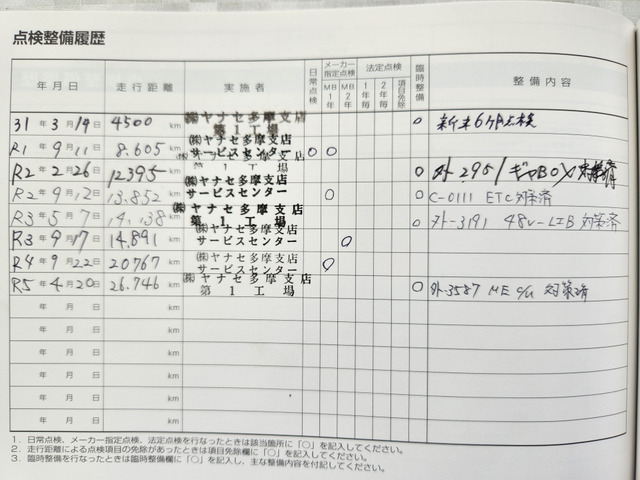 点検整備履歴
年月日 走行距離 実施者 日常点検 メーカー指定点検 MB1年 MB2年 法定点検 1年毎 2年毎 項目免除 臨時整備 整備内容
31年3月19日 4500km ㈱ヤナセ多摩支店 第1工場 ○ 新車6ヶ月点検
R1年9月11日 8.605km ㈱ヤナセ多摩支店 サービスセンター ○ ○
R2年2月26日 12395km ㈱ヤナセ多摩支店 第1工場 ○ 外-2951ギヤBOX対策済
R2年9月12日 13.852km ㈱ヤナセ多摩支店 サービスセンター ○ ○ C-0111 ETC対策済
R3年5月7日 14,138km ㈱ヤナセ多摩支店 第1工場 ○ 外-3191 48V-LIB対策済
R3年9月17日 14.891km ㈱ヤナセ多摩支店 サービスセンター ○
R4年9月22日 20767km ㈱ヤナセ多摩支店 サービスセンター ○
R5年4月20日 26.746km ㈱ヤナセ多摩支店 第1工場 ○ 外-3587 ME C/U 対策済
年月日 km
年月日 km
年月日 km
年月日 km
年月日 km
年月日 km
1．日常点検、メーカー指定点検、法定点検を行なったときは該当箇所に「○」を記入してください。
2．走行距離による点検項目の免除があったときは項目免除欄に「○」を記入してください。
3．臨時整備を行なったときは臨時整備欄に「○」を記入し、主な整備内容を付記してください。